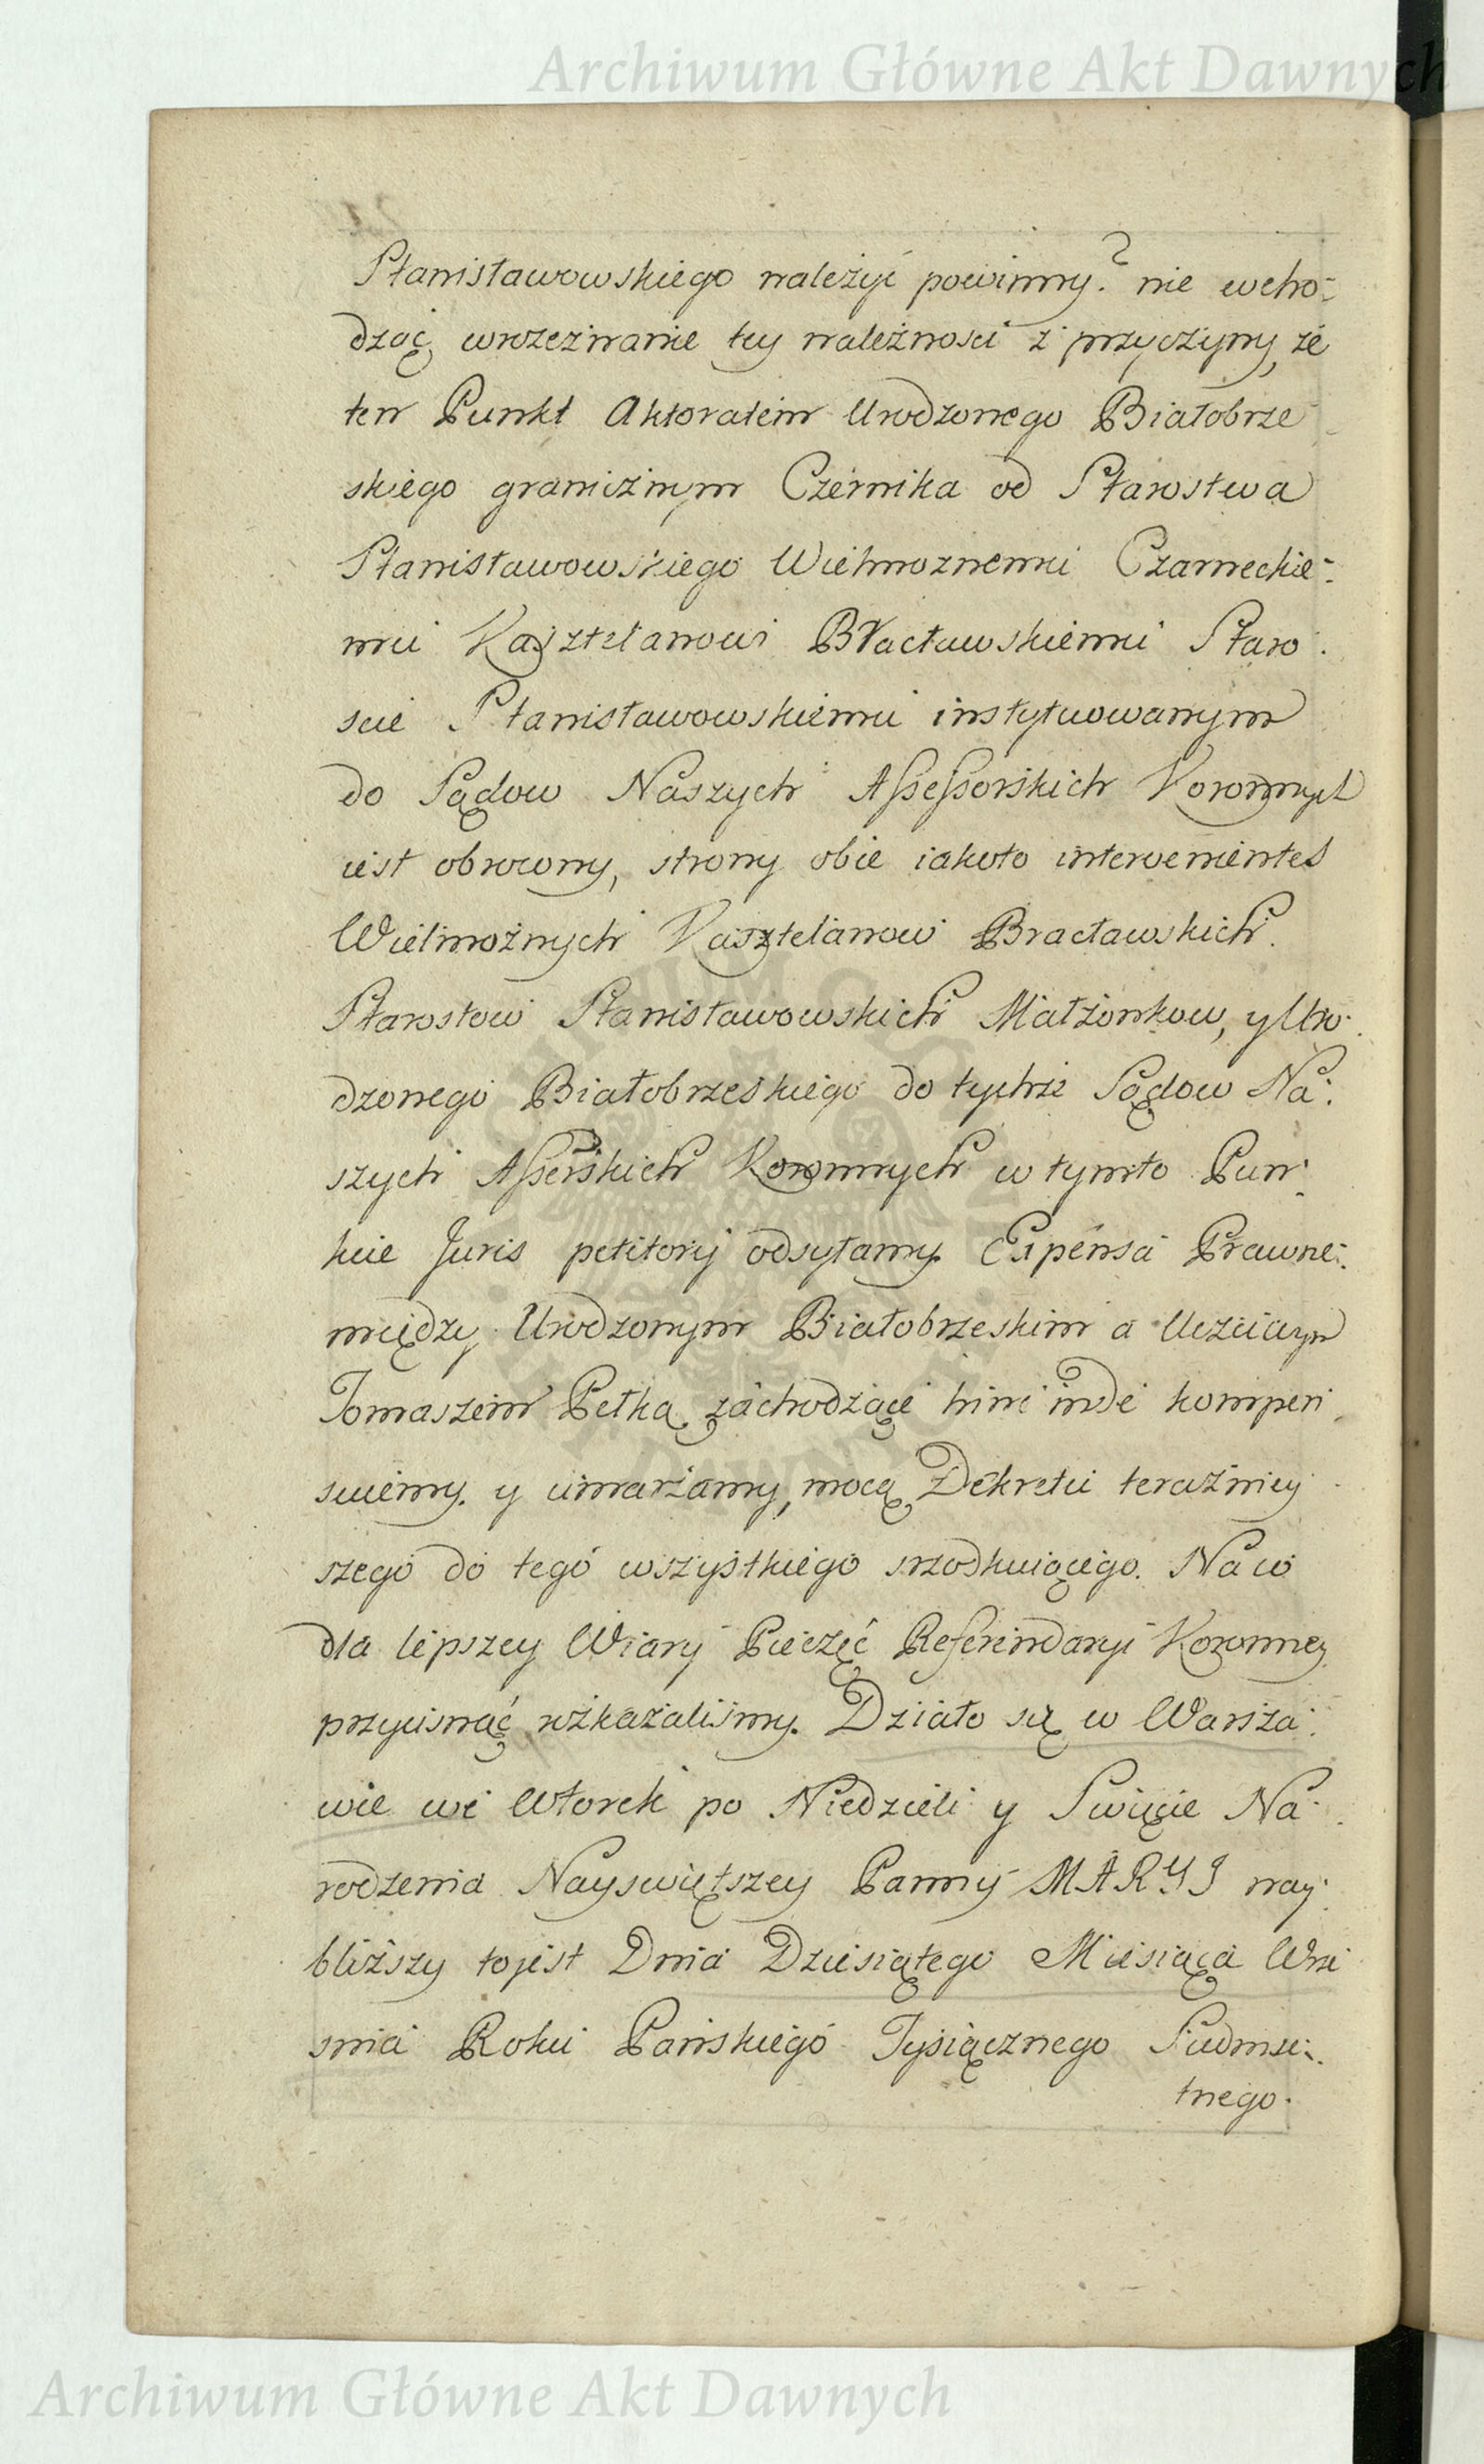 Archiwum Główne Akt Dawnych
Stanisławowskiego należyć powinny? nie wcho-
dząc wrozeznanie tey należnosci z przyczyny, że
ten Punkt Aktoratem Urodzonego Białobrze
skiego granicznym Czernika od Starostwa
Stanisławowskiego Wielmoznemu Czarneckie-
mu Kasztelanowi Bracławskiemu Staro
scie Stanisławowskiemu instytuowanym
do Sądow Naszych Assessorskich Koronnych
iest obrocony, strony obie iakoto intervenientes
Wielmożnych Kasztelanow Bracławskich
Starostow Stanisławowskich Małżonkow, y Uro
dzonego Białobrzeskiego do tychże Sądow Na-
szych Asserskich Koronnych w tymto Pun-
kcie Juris petitorij odsyłamy. Expensa Prawne
między Urodzonym Białobrzeskim a Uczciwym
Tomaszem Pełką zachodzące hinc inde kompen
suiemy. y umarzamy, mocą Dekretu teraźniey
szego do tego wszystkiego srzodkuiącego. Na co
dla lepszey Wiary Pieczęć Referendaryi Koronney
przycisnąć rozkazalismy. Działo się w Warsza-
wie we Wtorek po Niedzieli y Swięcie Na-
rodzenia Nayswiętszey Panny MARYI nay-
bliższy to jest Dnia Dziesiątego Miesiąca Wrze
snia Roku Pańskiego Tysiącznego Siedmse-
tnego.
Archiwum Główne Akt Dawnych